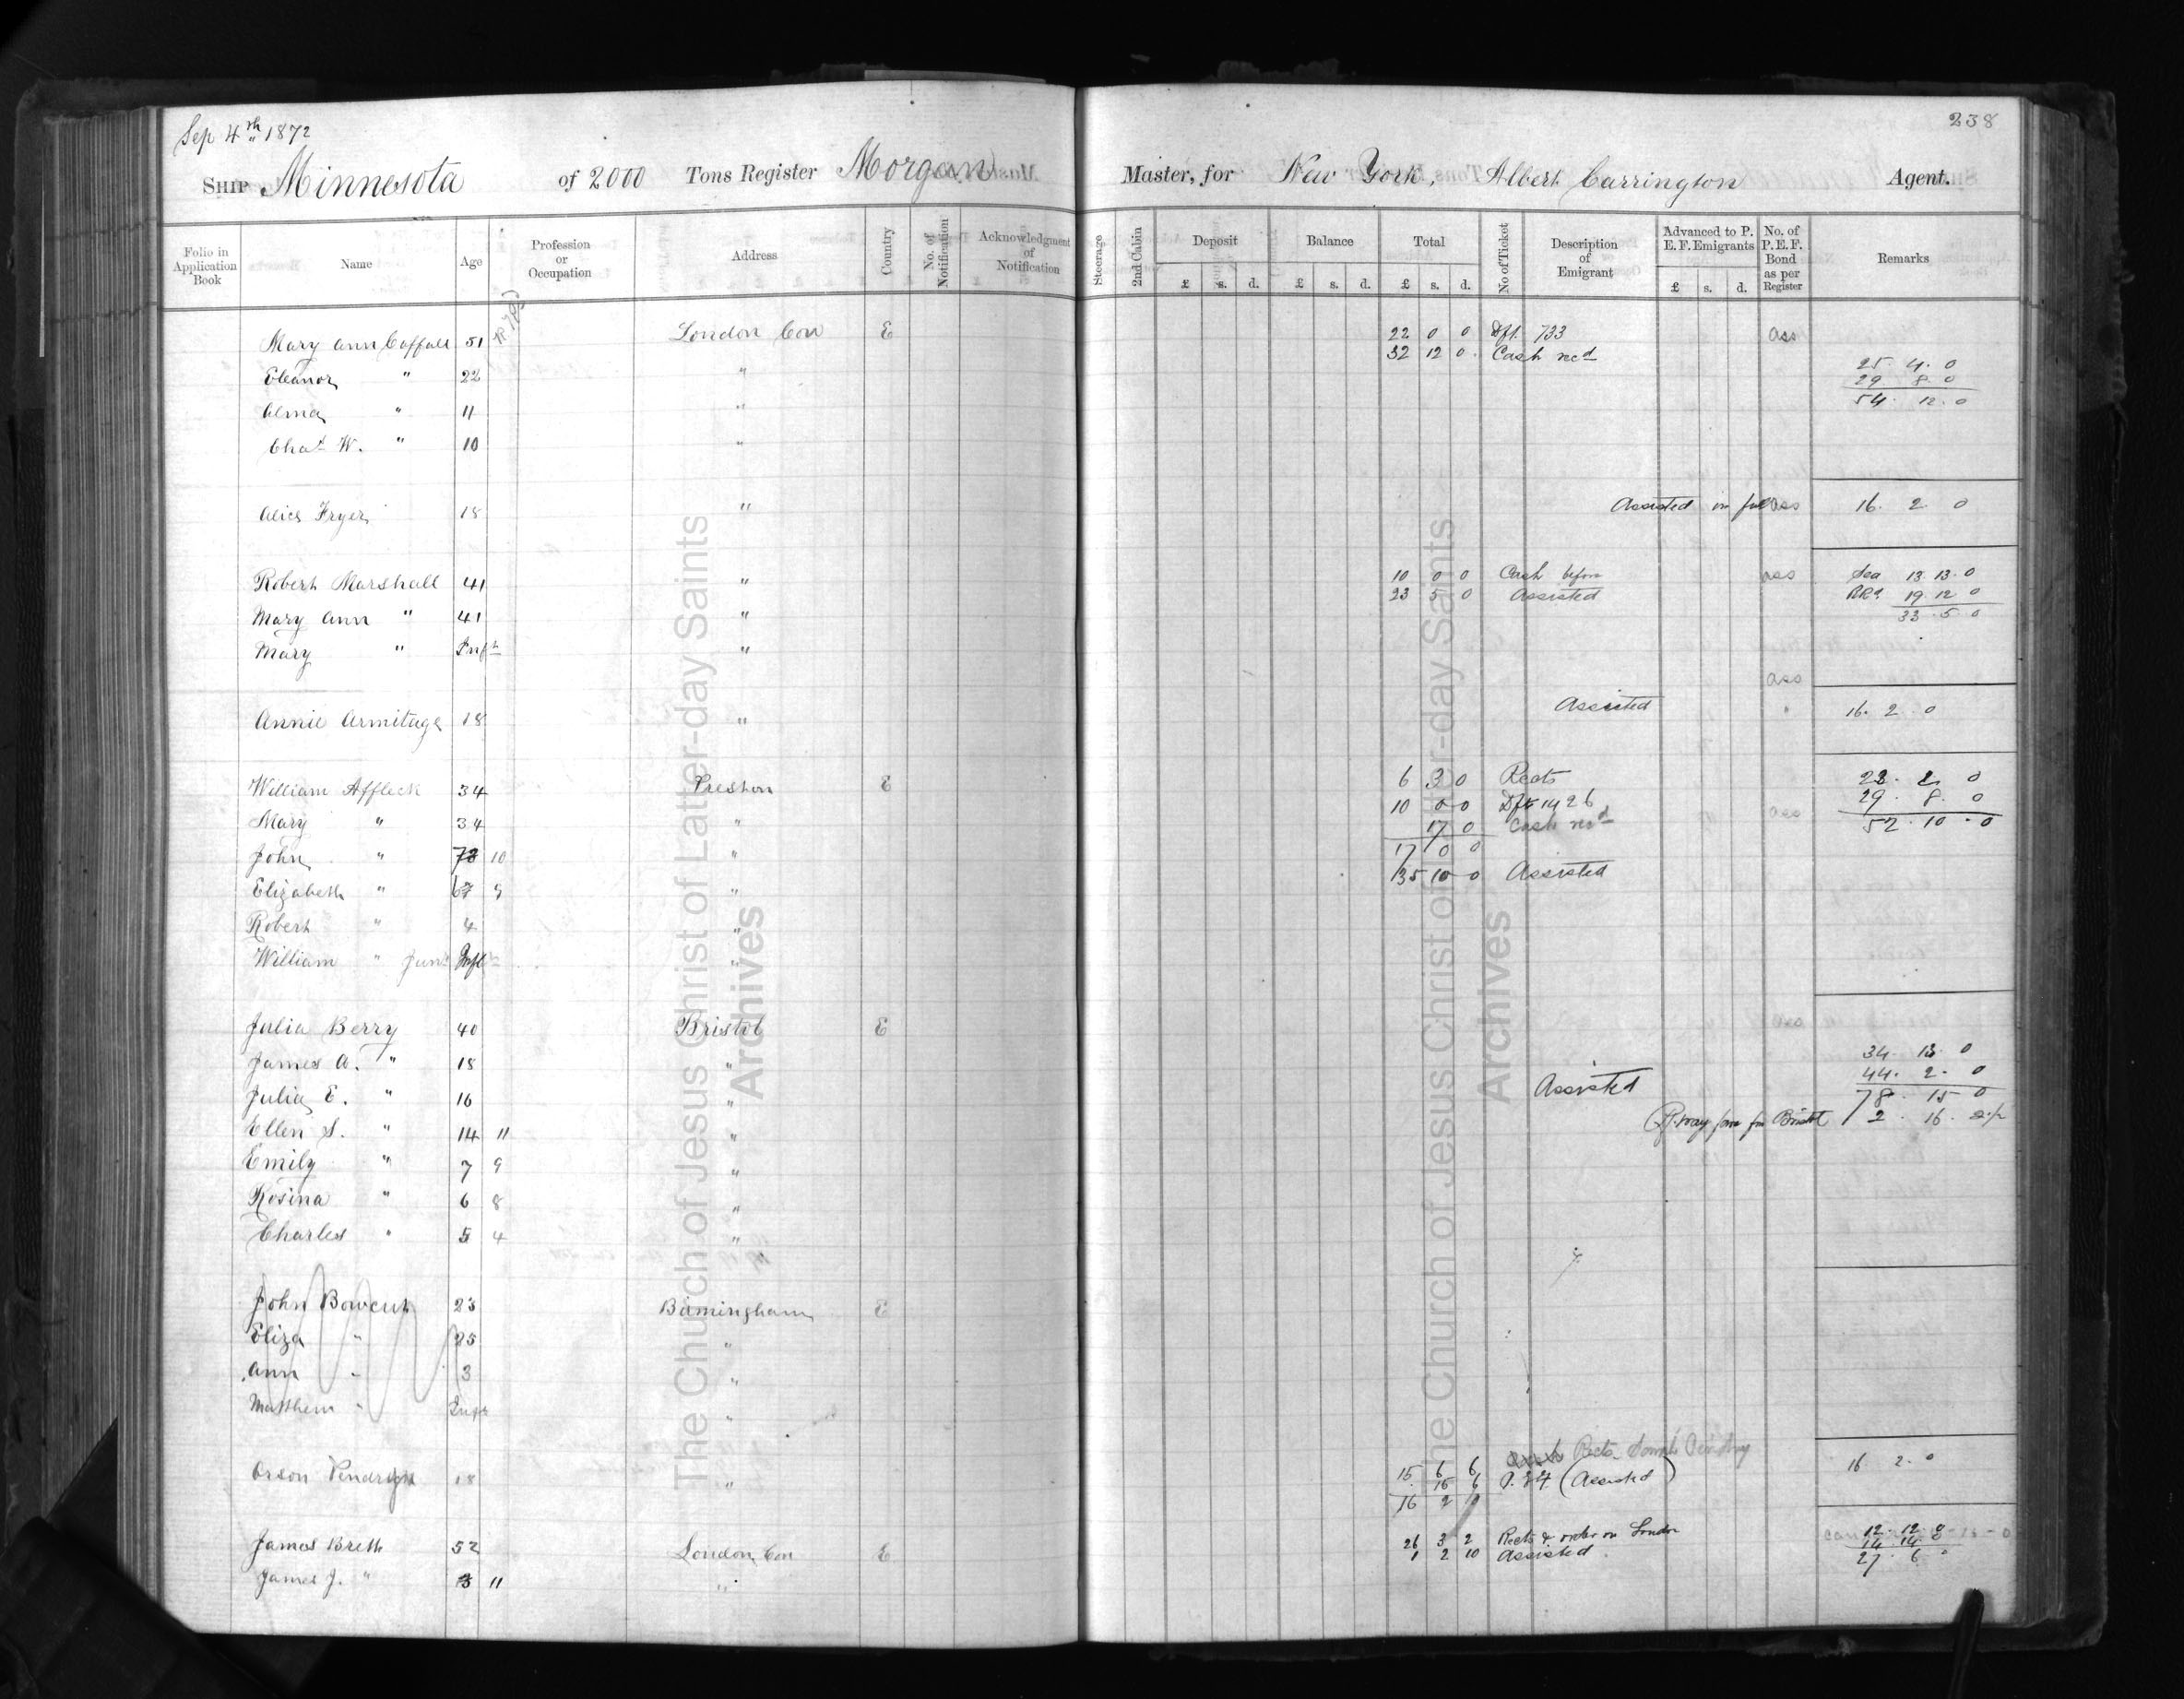 Sep 4th 1872
238
Ship Minnesota of 2000 Tons Register Morgan Master, for New York, Albert Carrington Agent.
Folio in Application Book | Name | Age | Profession or Occupation | Address | Country | No. of Notification | Acknowledgment of Notification | Steerage | 2nd Cabin | Deposit £ s. d. | Balance £ s. d. | Total £ s. d. | No of Ticket | Description of Emigrant | Advanced to P. E. F. Emigrants £ s. d. | No. of P. E. F. Bond as per Register | Remarks
Mary Ann Coffall 51 London Con E 22 0 0 Dft. 733 Ass
32 12 0 Cash recd
25. 4. 0
Eleanor " 22 " 29 8 0
Alma " 11 " 54. 12. 0
Chas W. " 10 "
Alice Fryer 18 " Assisted in full Ass 16. 2. 0
Robert Marshall 41 " 10 0 0 Cash before ass Sea 13. 13. 0
23 5 0 Assisted 19 12 0
Mary Ann " 41 " 33. 5. 0
Mary " Inft "
Ass
Annie Armitage 18 " Assisted " 16. 2. 0
William Affleck 34 Preston E 6 3 0 Rects 23. 2. 0
10 0 0 Dft 1426 29. 8. 0
Mary " 34 " 17 0 Cash recd ass 52. 10. 0
John " 10 " 17 0 0
Elizabeth " 9 " 35 10 0 Assisted
Robert " 4 "
William " Junr Inft "
Julia Berry 40 Bristol E Ass
James A. " 18 " 34. 13. 0
Julia E. " 16 " Assisted 44. 2. 0
78. 15 0
Ellen S. " 14 11 " R.way fare fm Bristol 2. 16.
Emily " 7 9 "
Rosina " 6 8 "
Charles " 5 4 "
John Bowcut 23 Birmingham E
Eliza " 25 "
Ann " 3 "
Matthew " Inft "
Rects
Orson 18 " 15 6 6 16 2. 0
15 6 (Assisted)
16 2 0
James Brett 52 London Con E 26 3 2 Rects & order on London 12. 12. 0
1 2 10 Assisted 14. 14. 0
27. 6 0
James J. " 11 "
The Church of Jesus Christ of Latter-day Saints
Archives
The Church of Jesus Christ of Latter-day Saints
Archives